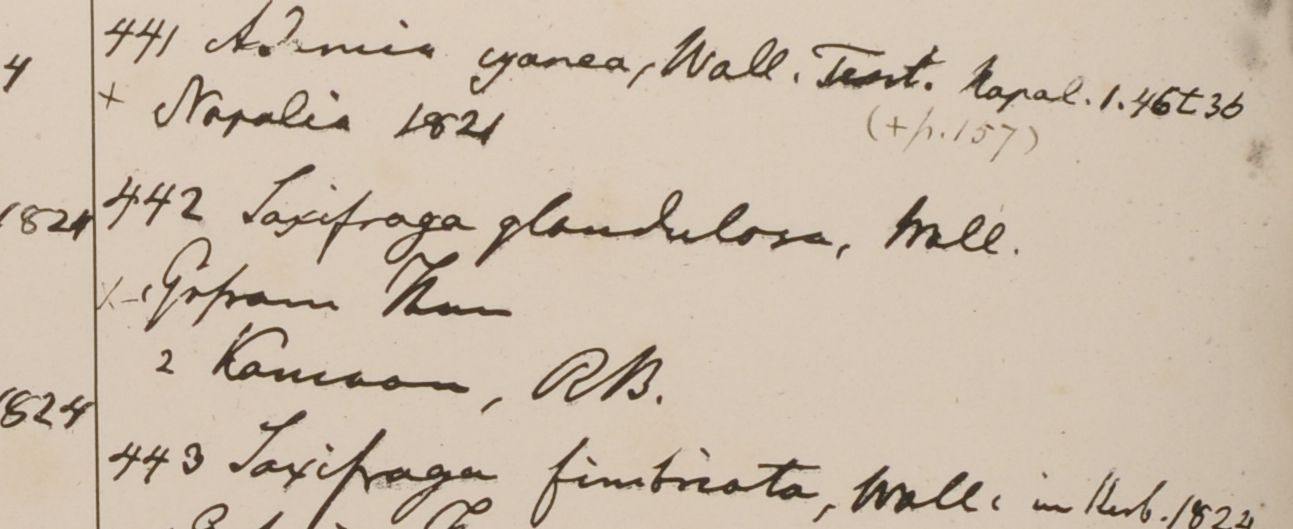 4
441 Adamia cyanea, Wall. Tent. Napal. 1.46 t 36
+ Napalia 1821
(+p.157)
1821
442 Saxifraga glandulosa, Wall.
Gosam Than
2 Kamaon, R B.
1824
443 Saxifraga fimbriata, Wall. in Herb. 1824